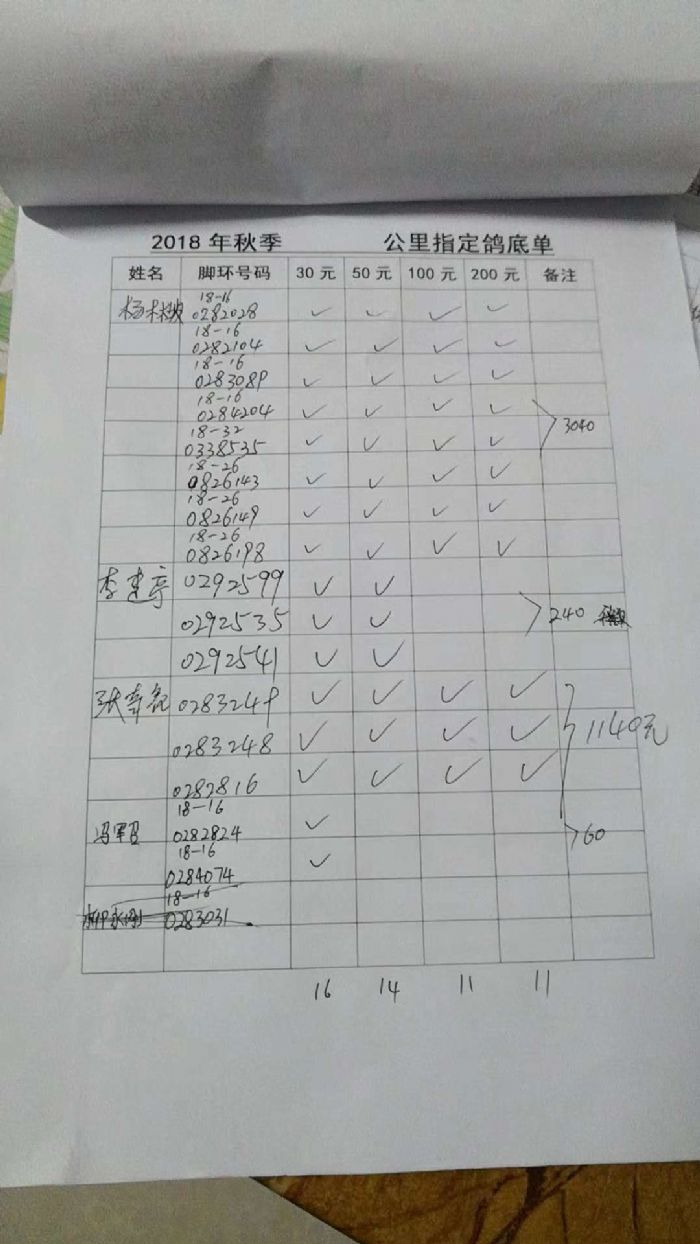 2018 年秋季 公里指定鸽底单
姓名 脚环号码 30 元 50 元 100 元 200 元 备注
18-16
0282028 ✓ ✓ ✓ ✓
18-16
0282104 ✓ ✓ ✓ ✓
18-16
0283089 ✓ ✓ ✓ ✓
18-16
0284204 ✓ ✓ ✓ ✓
3040
18-32
0338535 ✓ ✓ ✓ ✓
18-26
0826143 ✓ ✓ ✓ ✓
18-26
0826149 ✓ ✓ ✓ ✓
18-26
0826198 ✓ ✓ ✓ ✓
李建亭 0292599 ✓ ✓
0292535 ✓ ✓ 240
0292541 ✓ ✓
张 0283249 ✓ ✓ ✓ ✓
0283248 ✓ ✓ ✓ ✓ 1140元
0282816 ✓ ✓ ✓ ✓
18-16
冯军 0282824 ✓ 60
18-16
0284074 ✓
18-16
0283031
16 14 11 11